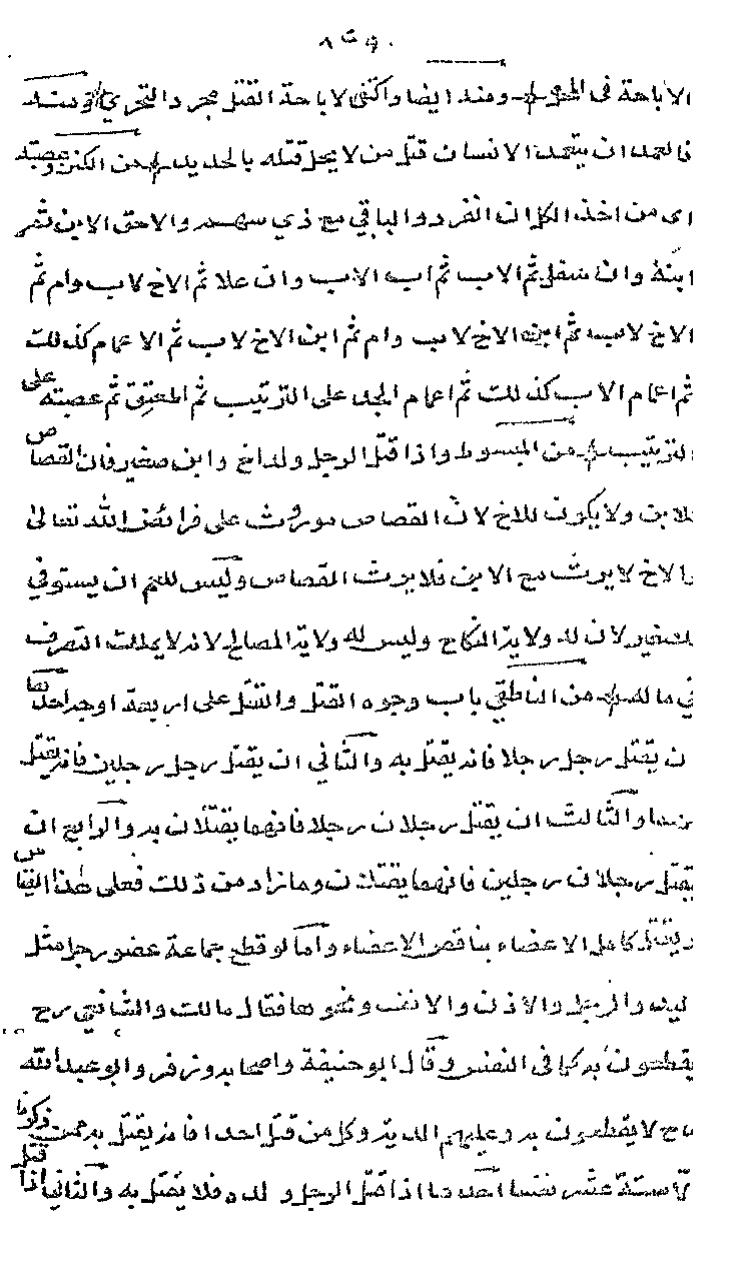 الاباحة فى ومنه ايضا واكتفى لاباحة القتل مجرد التحري
فالعمد ان يتعمد الانسان قتل من لا يحل قتله بالحديد من الكنز وعصبته
اى من اخذ الكل ان انفرد والباقي مع ذي سهم والاحق الابن ثم
ابنه وان سفل ثم الاب ثم اب الاب وان علا ثم الاخ لاب وام ثم
الاخ لاب ثم ابن الاخ لاب وام ثم ابن الاخ لاب ثم الاعمام كذلك
ثم اعمام الاب كذلك ثم اعمام الجد على الترتيب ثم المعتق ثم عصبته على
الترتيب من المبسوط واذا قتل الرجل وله اخ وابن صغير فان القصاص
للابن ولا يكون للاخ لان القصاص موروث على فرائض الله تعالى
والاخ لا يرث مع الابن فلا يرث القصاص وليس للعم ان يستوفي
للصغير لان له ولاية النكاح وليس له ولاية المصالح لانه لا يملك التصرف
في ماله من الناطقي باب وجوه القتل والقتل على اربعة اوجه احدها
ان يقتل رجل رجلا فانه يقتل به والثاني ان يقتل رجل رجلين فانه يقتل
بهما والثالث ان يقتل رجلان رجلا فانهما يقتلان به والرابع ان
يقتل رجلان رجلين فانهما يقتلان وما زاد من ذلك فعلى هذا القياس
ويقتل كامل الاعضاء بناقص الاعضاء واما لو قطع جماعة عضو رجل مثل
اليد والرجل والاذن والانف ونحوها فقال مالك والشافعي رح
يقطعون به كما فى النفس وقال ابو حنيفة واصحابه وزفر وابو عبد الله
رح لا يقطعون به وعليهم الدية وكل من قتل احدا فانه يقتل به ممن ذكرنا
الا ستة عشر نفسا احدها اذا قتل الرجل ولده فلا يقتل به والثاني اذا قتل